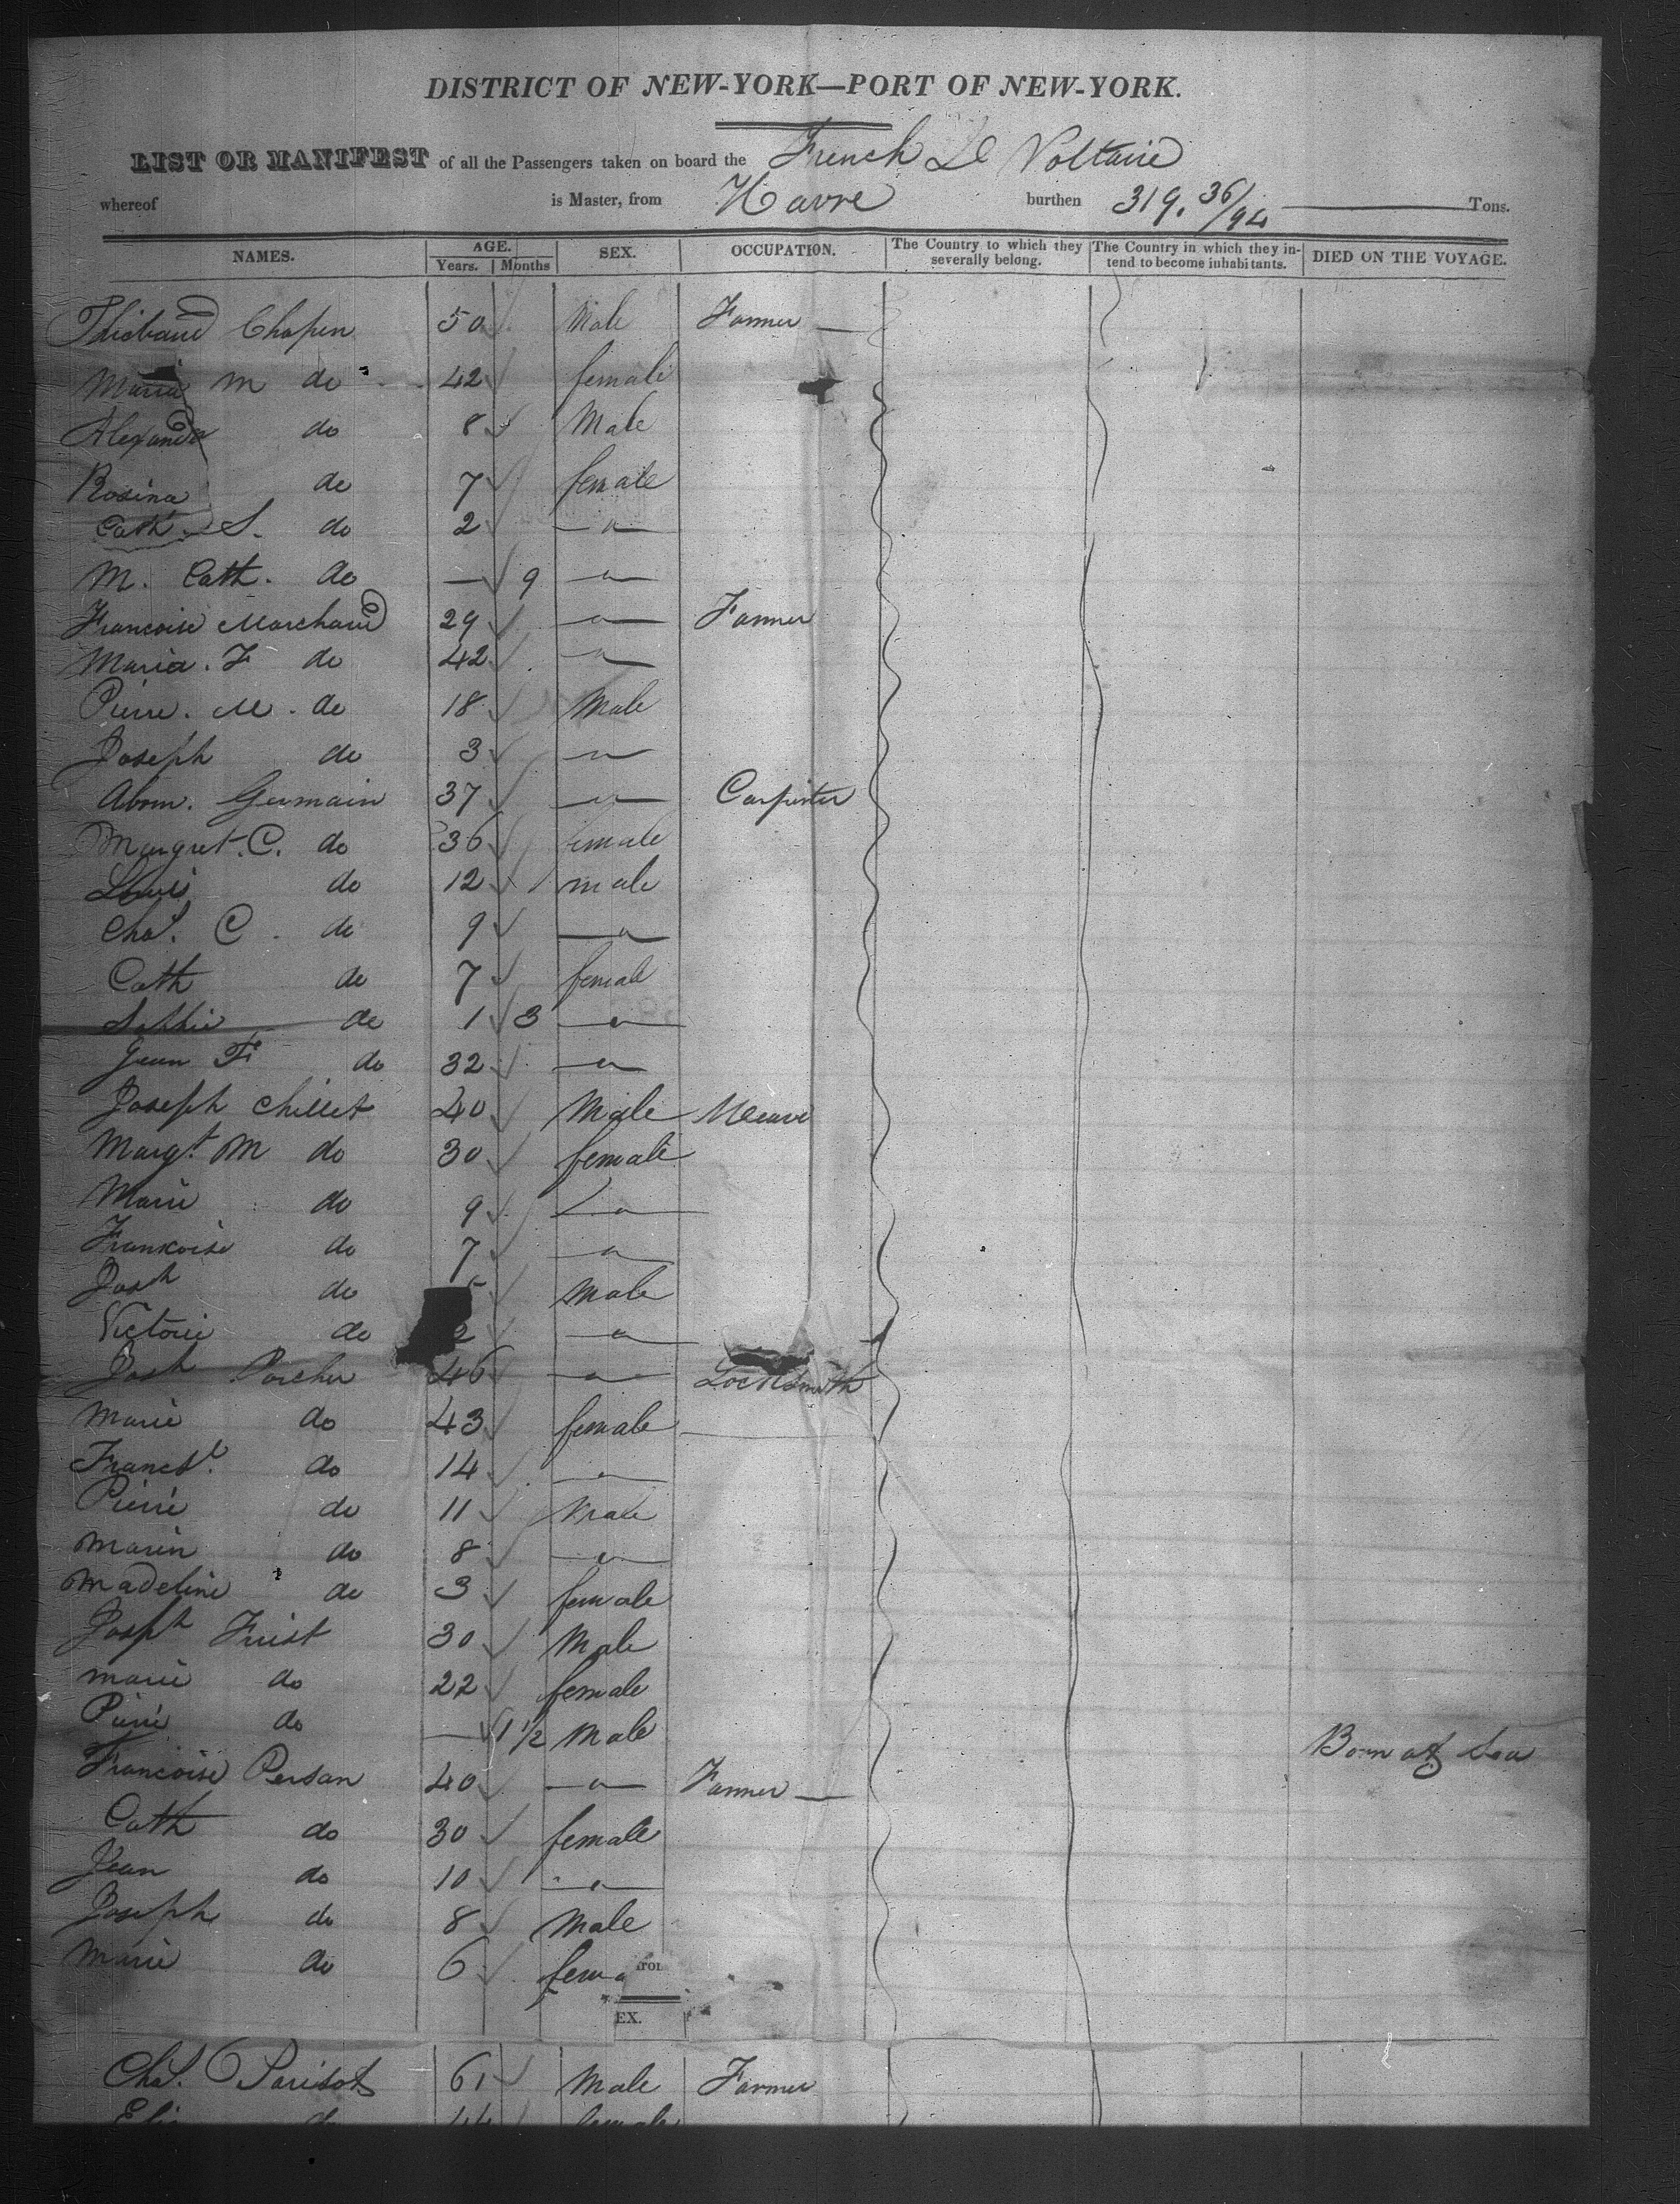 DISTRICT OF NEW-YORK—PORT OF NEW-YORK.
LIST OR MANIFEST of all the Passengers taken on board the French Le Voltaire
whereof is Master, from Havre burthen 319. 36/94 Tons.
NAMES. AGE. Years. Months SEX. OCCUPATION. The Country to which they severally belong. The Country in which they intend to become inhabitants. DIED ON THE VOYAGE.
Thiebaud Chapin 50 Male Farmer
Maria M do 42 female
Alexander do 8 Male
Rosina do 7 female
Cath. S. do 2 — " —
M. Cath. do — 9 — " —
Francoise Marchand 29 — " — Farmer
Maria. F do 42 — " —
Pierre. M. do 18 Male
Joseph do 3 — " —
Abm. Germain 37 — " — Carpenter
Margret. C. do 36 female
Louis do 12 male
Chas. C. do 9 — " —
Cath do 7 female
do 1 3 — " —
Jean F. do 32 — " —
Joseph Chillet 40 Male
Margt. M do 30 female
Marie do 9 — " —
Francoise do 7 — " —
Josh do Male
Victoire do 2 — " —
Josh Porcher 46 — " — Locksmith
Marie do 43 female
do 14 — " —
Pierre do 11 Male
Marin do 8 — " —
Madeline do 3 female
Josph Frist 30 Male
Marie do 22 female
Pierre do — 1 1/2 Male Born at Sea
Francoise Persan 40 — " — Farmer —
Cath do 30 female
Jean do 10 — " —
Joseph do 8 Male
Marie do 6 fema
EX.
Chas. Parisot 61 Male Farmer